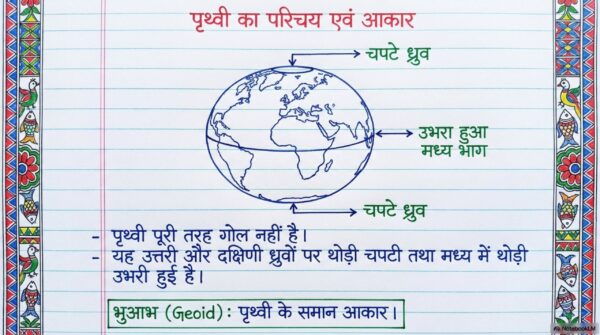 पृथ्वी का परिचय एवं आकार
चपटे ध्रुव
उभरा हुआ
मध्य भाग
चपटे ध्रुव
- पृथ्वी पूरी तरह गोल नहीं है।
- यह उत्तरी और दक्षिणी ध्रुवों पर थोड़ी चपटी तथा मध्य में थोड़ी
उभरी हुई है।
भुआभ (Geoid): पृथ्वी के समान आकार।
NotebookLM